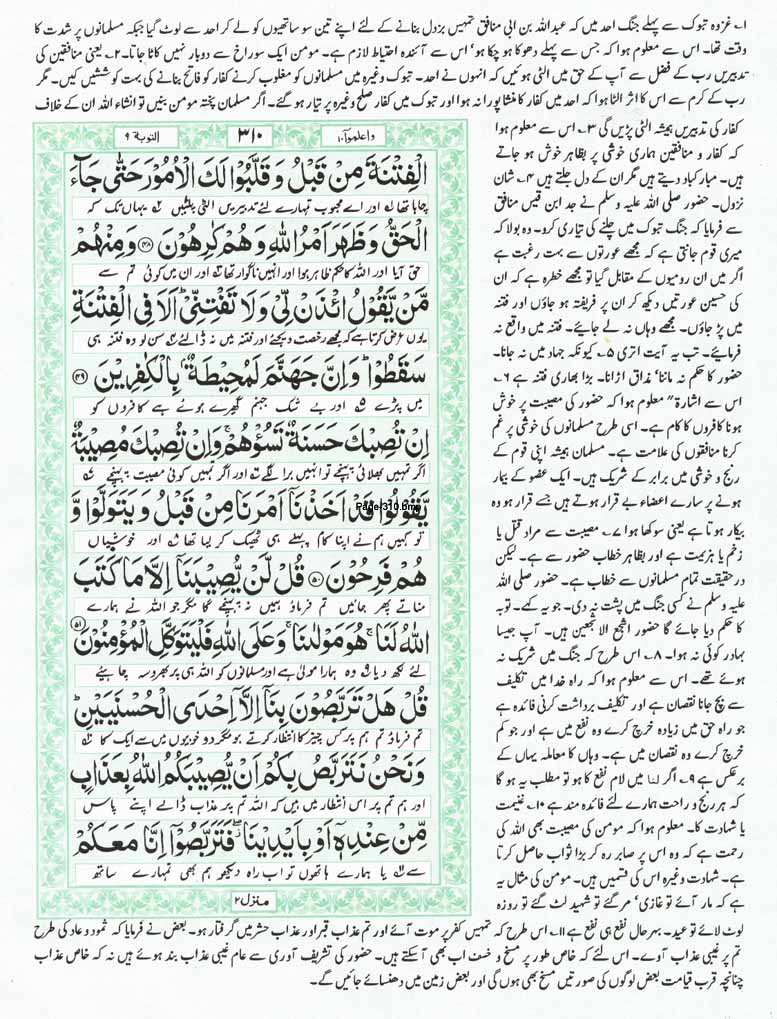 ۱۔ غزوہ تبوک سے پہلے جنگ احد میں کہ عبداللہ بن ابی منافق تمہیں بزدل بنانے کے لئے اپنے تین سو ساتھیوں کو لے کر احد سے لوٹ گیا جبکہ مسلمانوں پر شدت کا
وقت تھا۔ اس سے معلوم ہوا کہ جس سے پہلے دھوکا ہو چکا ہو' اس سے آئندہ احتیاط لازم ہے۔ مومن ایک سوراخ سے دوبار نہیں کاٹا جاتا۔ ۲۔ یعنی منافقین کی
تدبیریں رب کے فضل سے آپ کے حق میں الٹی ہوئیں کہ انہوں نے احد۔ تبوک وغیرہ میں مسلمانوں کو مغلوب کرنے کفار کو فاتح بنانے کی بہت کوششیں کیں۔ مگر
رب کے کرم سے اس کا اثر الٹا ہوا کہ احد میں کفار کا منشا پورا نہ ہوا اور تبوک میں کفار صلح وغیرہ پر تیار ہو گئے۔ اگر مسلمان پختہ مومن بنیں تو انشاء اللہ ان کے خلاف
کفار کی تدبیریں ہمیشہ الٹی پڑیں گی ۳۔ اس سے معلوم ہوا
کہ کفار و منافقین ہماری خوشی پر بظاہر خوش ہو جاتے
ہیں۔ مبارکباد دیتے ہیں مگر ان کے دل جلتے ہیں ۴۔ شان
نزول۔ حضور صلی اللہ علیہ وسلم نے جد ابن قیس منافق
سے فرمایا کہ جنگ تبوک میں چلنے کی تیاری کرو۔ وہ بولا کہ
میری قوم جانتی ہے کہ مجھے عورتوں سے بہت رغبت ہے
اگر میں ان رومیوں کے مقابل گیا تو مجھے خطرہ ہے کہ ان
کی حسین عورتیں دیکھ کر ان پر فریفتہ ہو جاؤں اور فتنہ
میں پڑ جاؤں۔ مجھے وہاں نہ لے جائیے۔ فتنہ میں واقع نہ
فرمایئے۔ تب یہ آیت اتری ۵۔ کیونکہ جہاد میں نہ جانا۔
حضور کا حکم نہ ماننا' مذاق اڑانا۔ بڑا بھاری فتنہ ہے ۶۔
اس سے اشارۃ" معلوم ہوا کہ حضور کی مصیبت پر خوش
ہونا کافروں کا کام ہے۔ اسی طرح مسلمانوں کی خوشی پر غم
کرنا منافقوں کی علامت ہے۔ مسلمان ہمیشہ اپنی قوم کے
رنج و خوشی میں برابر کے شریک ہیں۔ ایک عضو کے بیمار
ہونے پر سارے اعضاء بے قرار ہوتے ہیں جسے قرار ہو وہ
بیکار ہوتا ہے یعنی سوکھا ہوا ۷۔ مصیبت سے مراد قتل یا
زخم یا ہزیمت ہے اور بظاہر خطاب حضور سے ہے۔ لیکن
درحقیقت تمام مسلمانوں سے خطاب ہے۔ حضور صلی اللہ
علیہ وسلم نے کسی جنگ میں پشت نہ دی۔ جو یہ کہے۔ توبہ
کا حکم دیا جائے گا حضور اشجع الاشجعین ہیں۔ آپ جیسا
بہادر کوئی نہ ہوا۔ ۸۔ اس طرح کہ جنگ میں شریک نہ
ہوئے تھے۔ اس سے معلوم ہوا کہ راہ خدا میں تکلیف
سے بچ جانا نقصان ہے اور تکلیف برداشت کرنی فائدہ ہے
جو راہ حق میں زیادہ خرچ کرے وہ نفع میں ہے اور جو کم
خرچ کرے وہ نقصان میں ہے۔ وہاں کا معاملہ یہاں کے
برعکس ہے ۹۔ اگر لنا میں لام نفع کا ہو تو مطلب یہ ہو گا
کہ ہر رنج و راحت ہمارے لئے فائدہ مند ہے ۱۰۔ غنیمت
یا شہادت کا۔ معلوم ہوا کہ مومن کی مصیبت بھی اللہ کی
رحمت ہے کہ وہ اس پر صابر رہ کر بڑا ثواب حاصل کرتا
ہے۔ شہادت وغیرہ اس کی قسمیں ہیں۔ مومن کی مثال یہ
ہے کہ مار آئے تو غازی' مر گئے تو شہید لٹ گئے تو روزہ
واعلموا۱۰
۳۱۰
التوبة ۹
الْفِتْنَةَ مِنْ قَبْلُ وَقَلَّبُوْا لَكَ الْاُمُوْرَ حَتّٰى جَآءَ
چاہا تھا اور اے محبوب تمہارے لئے تدبیریں الٹی پلٹیں یہاں تک کہ
الْحَقُّ وَظَهَرَ اَمْرُ اللّٰهِ وَهُمْ كٰرِهُوْنَ ۴۸ وَمِنْهُمْ
حق آیا اور اللہ کا حکم ظاہر ہوا اور انہیں ناگوار تھا اور ان میں کوئی تم سے
مَّنْ يَّقُوْلُ ائْذَنْ لِّيْ وَلَا تَفْتِنِّيْ ؕ اَلَا فِى الْفِتْنَةِ
یوں عرض کرتا ہے کہ مجھے رخصت دیجئے اور فتنہ میں نہ ڈالئے سن لو وہ فتنہ ہی
سَقَطُوْا ؕ وَاِنَّ جَهَنَّمَ لَمُحِيْطَةٌۢ بِالْكٰفِرِيْنَ ۴۹
میں پڑے اور بے شک جہنم گھیرے ہوئے ہے کافروں کو
اِنْ تُصِبْكَ حَسَنَةٌ تَسُؤْهُمْ ۚ وَاِنْ تُصِبْكَ مُصِيْبَةٌ
اگر تمہیں بھلائی پہنچے تو انہیں برا لگے اور اگر تمہیں کوئی مصیبت پہنچے
يَّقُوْلُوْا قَدْ اَخَذْنَاۤ اَمْرَنَا مِنْ قَبْلُ وَيَتَوَلَّوْا وَّ
Page-310.bmp
تو کہیں ہم نے اپنا کام پہلے ہی ٹھیک کر لیا تھا اور خوشیاں
هُمْ فَرِحُوْنَ ۵۰ قُلْ لَّنْ يُّصِيْبَنَاۤ اِلَّا مَا كَتَبَ
مناتے پھر جائیں تم فرماؤ ہمیں نہ پہنچے گا مگر جو اللہ نے ہمارے
اللّٰهُ لَنَا ۚ هُوَ مَوْلٰىنَا ۚ وَعَلَى اللّٰهِ فَلْيَتَوَكَّلِ الْمُؤْمِنُوْنَ ۵۱
لئے لکھ دیا وہ ہمارا مولیٰ ہے اور مسلمانوں کو اللہ ہی پر بھروسہ چاہئے
قُلْ هَلْ تَرَبَّصُوْنَ بِنَاۤ اِلَّاۤ اِحْدَى الْحُسْنَيَيْنِ ؕ
تم فرماؤ تم ہم پر کس چیز کا انتظار کرتے ہو مگر دو خوبیوں میں سے ایک کا
وَنَحْنُ نَتَرَبَّصُ بِكُمْ اَنْ يُّصِيْبَكُمُ اللّٰهُ بِعَذَابٍ
اور ہم تم پر اس انتظار میں ہیں کہ اللہ تم پر عذاب ڈالے اپنے پاس
مِّنْ عِنْدِهٖۤ اَوْ بِاَيْدِيْنَا ۖ فَتَرَبَّصُوْۤا اِنَّا مَعَكُمْ
سے یا ہمارے ہاتھوں تو اب راہ دیکھو ہم بھی تمہارے ساتھ
منزل ۲
لوٹ لائے تو عید۔ بہرحال نفع ہی نفع ہے ۱۱۔ اس طرح کہ تمہیں کفر پر موت آئے اور تم عذاب قبر اور عذاب حشر میں گرفتار ہو۔ بعض نے فرمایا کہ ثمود و عاد کی طرح
تم پر غیبی عذاب آوے۔ اس لئے کہ خاص طور پر مسخ و خسف اب بھی آ سکتے ہیں۔ حضور کی تشریف آوری سے عام غیبی عذاب بند ہوئے ہیں نہ کہ خاص عذاب
چنانچہ قرب قیامت بعض لوگوں کی صورتیں مسخ بھی ہوں گی اور بعض زمین میں دھنسائے جائیں گے۔